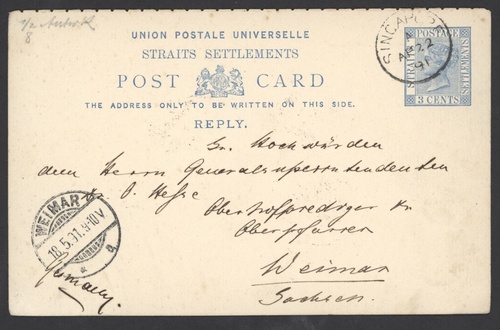 UNION POSTALE UNIVERSELLE
STRAITS SETTLEMENTS
POST CARD
THE ADDRESS ONLY TO BE WRITTEN ON THIS SIDE.
REPLY.
SINGAPORE
A
AP 22
91
STRAITS
POSTAGE
SETTLEMENTS
3 CENTS
8
Sr. Hochwürden
dem Herrn Generalsuperintendenten
D. Hesse
Oberhofprediger
Oberpfarrer
Weimar
Sachsen.
Germany.
WEIMAR
18.5.91.9-10V.